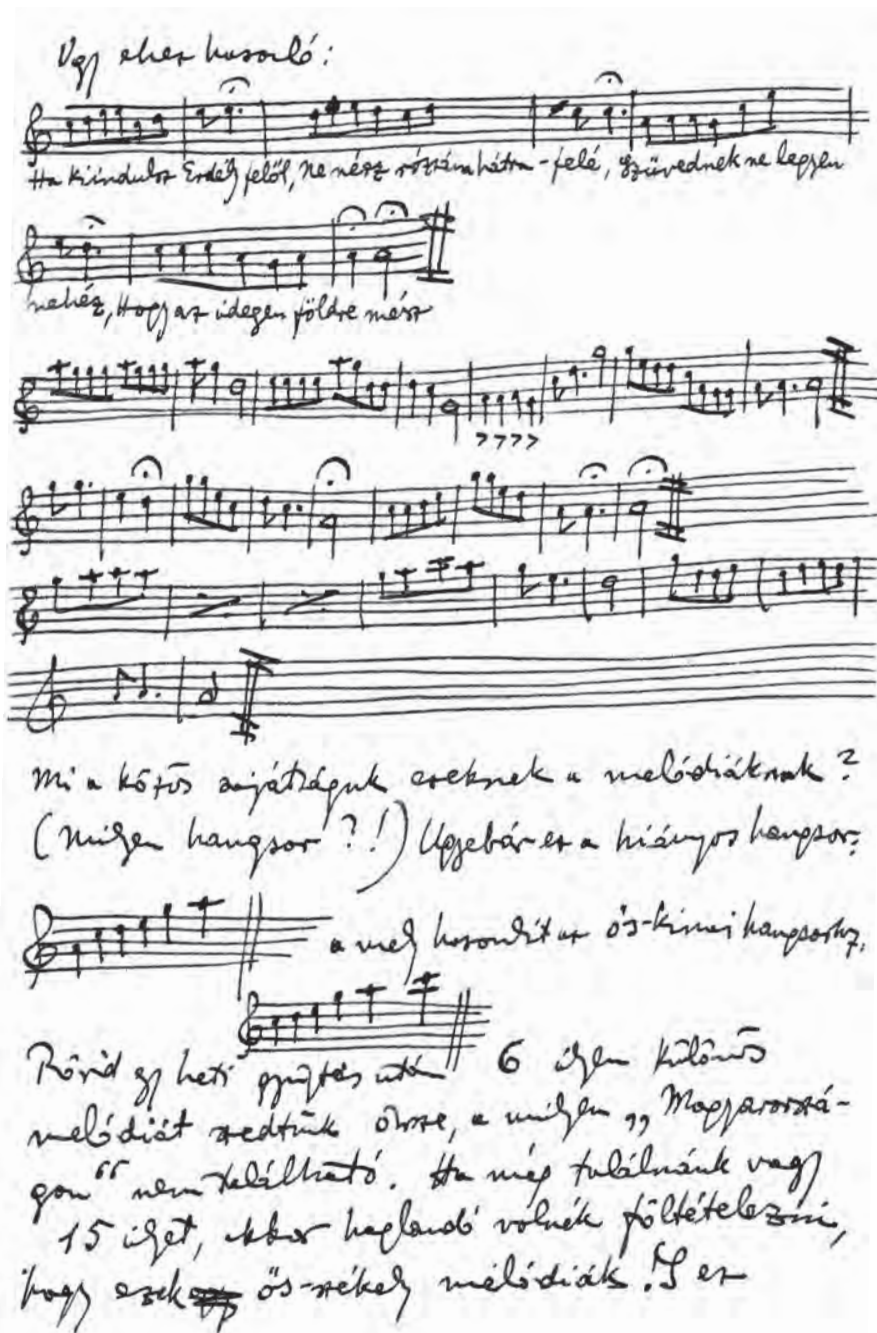 Ugy ehez hasonló:
Ha kiindulsz Erdély felől, Ne nész rózsám hátra-felé, Szüvednek ne legyen
nehéz, Hogy az idegen földre mész
Mi a közös sajátságuk ezeknek a melódiáknak?
(Milyen hangsor?!) Ugyebár ez a hiányos hangsor:
a mely hasonlit az ős-kinai hangsorhoz.
Rövid egy heti gyüjtés után 6 ilyen különös
melódiát szedtünk össze, a milyen „Magyarorszá-
gon“ nem található. Ha még találnánk vagy
15 ilyet, akkor hajlandó volnék föltételezni,
hogy ezek ős-székely melódiák. S ez